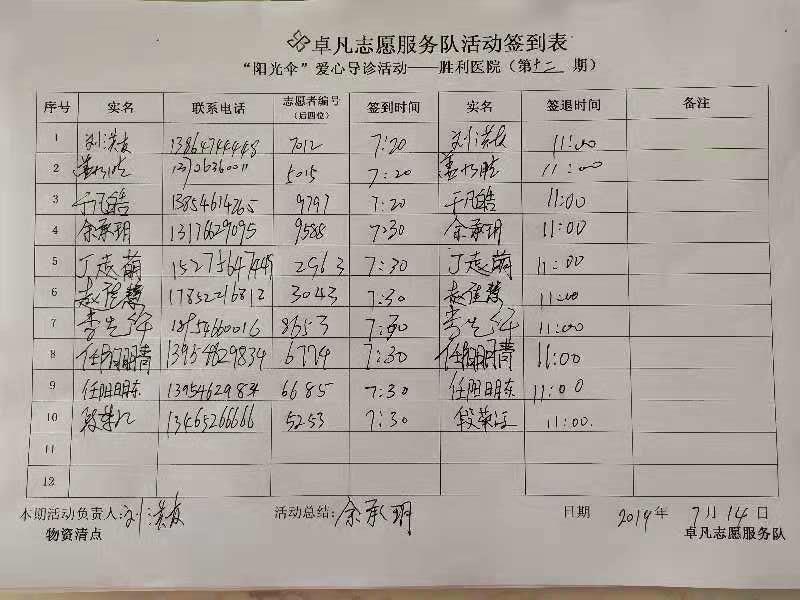 卓凡志愿服务队活动签到表
“阳光伞”爱心导诊活动——胜利医院(第十二期)
序号 实名 联系电话 志愿者编号(后四位) 签到时间 实名 签退时间 备注
1 刘洪友 13864744448 7012 7:20 刘洪友 11:00
2 13706360011 5015 7:20 11:00
3 于凡皓 13854614265 9797 7:20 于凡皓 11:00
4 余承玥 13176629095 9588 7:30 余承玥 11:00
5 丁志萌 15275464744 2963 7:30 丁志萌 11:00
6 赵佳慧 17852216812 3043 7:30 赵佳慧 11:00
7 李先 18954660016 8653 7:30 李先 11:00
8 13954629834 6774 7:30 11:00
9 任阳明东 1395462984 6685 7:30 任阳明东 11:00
10 段荣 13465266666 5253 7:30 段荣 11:00.
11
12
本期活动负责人:刘洪友 活动总结:余承玥 日期 2019年7月14日
物资清点 卓凡志愿服务队